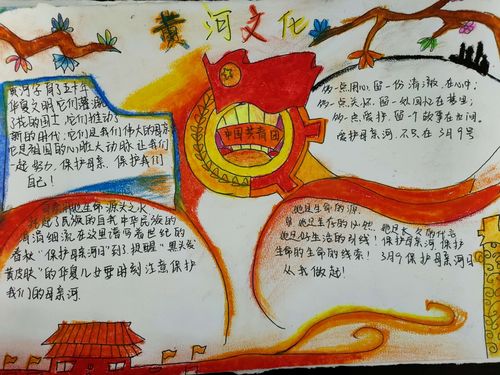 黄河文化
黄河孕育了五千年
华夏文明，它们灌溉
了我的国土，它们推动了
新的时代，它们是我们伟大的母亲
它是祖国的心脏大动脉让我们
一起努力，保护母亲，保护我们
自己！
中国共青团
多一点用心，留一份清澈，在心中；
多一点关怀，留一处回忆在梦里；
多一点爱护，留一个故事在世间。
爱护母亲河，不只在3月9号
生命源头之水
了民族的自我中华民族的
涓涓细流在这里谱写着世纪的
香歌"保护母亲河日"到了，提醒"黑头发
黄皮肤"的华夏儿女要时刻注意保护
我们的母亲河。
她是生命的源，
她是生存的必然，
她是好生活的引线！保护母亲河，保护
生命的生命的线索！3月9保护母亲河日
从我做起！